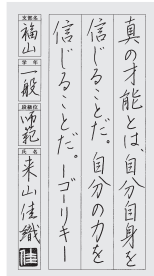 真の才能とは、自分自身を
信じることだ。自分の力を
信じることだ。ーゴーリキー
支部名
福山
学年
一般
段級位
師範
氏名
来山佳織
佳